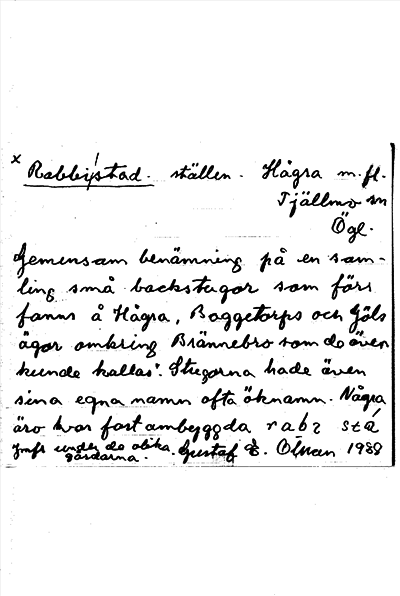 x Rabbystad. ställen. Hågra m. fl.
Tjällmo sn
Ögl.
Gemensam benämning på en sam-
ling små backstugor som förr
fanns å Hågra, Baggetorps och Göls
ägor omkring Brännebro som de även
kunde kallas. Stugorna hade även
sina egna namn ofta öknamn. Några
äro kvar fast ombyggda
Jmfr under de olika Gustaf E. Öman 1938
gårdarna.